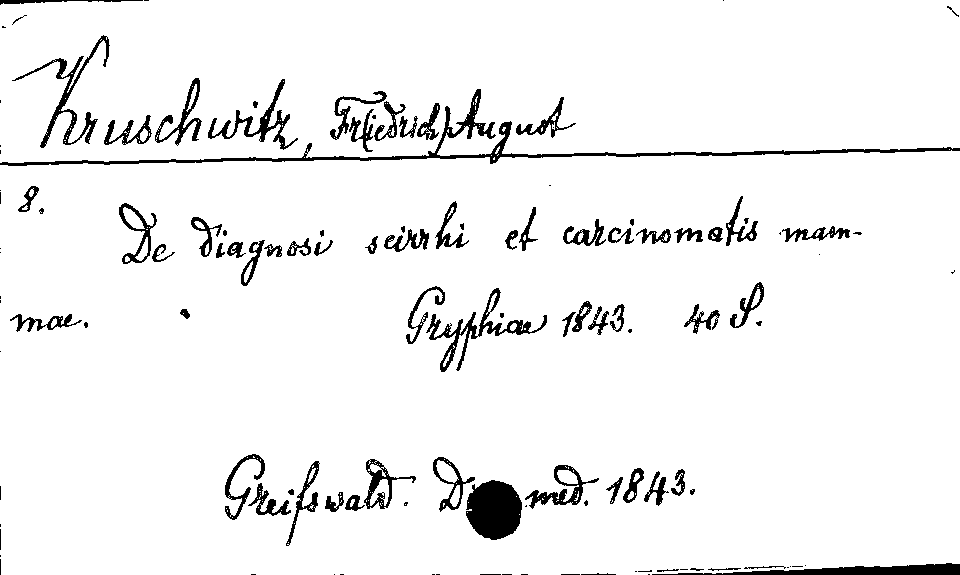 Kruschwitz, Fr(iedrich) August
8.
De diagnosi scirrhi et carcinomatis mam-
mae. Gryphiae 1843. 40 S.
Greifswald. med. 1843.